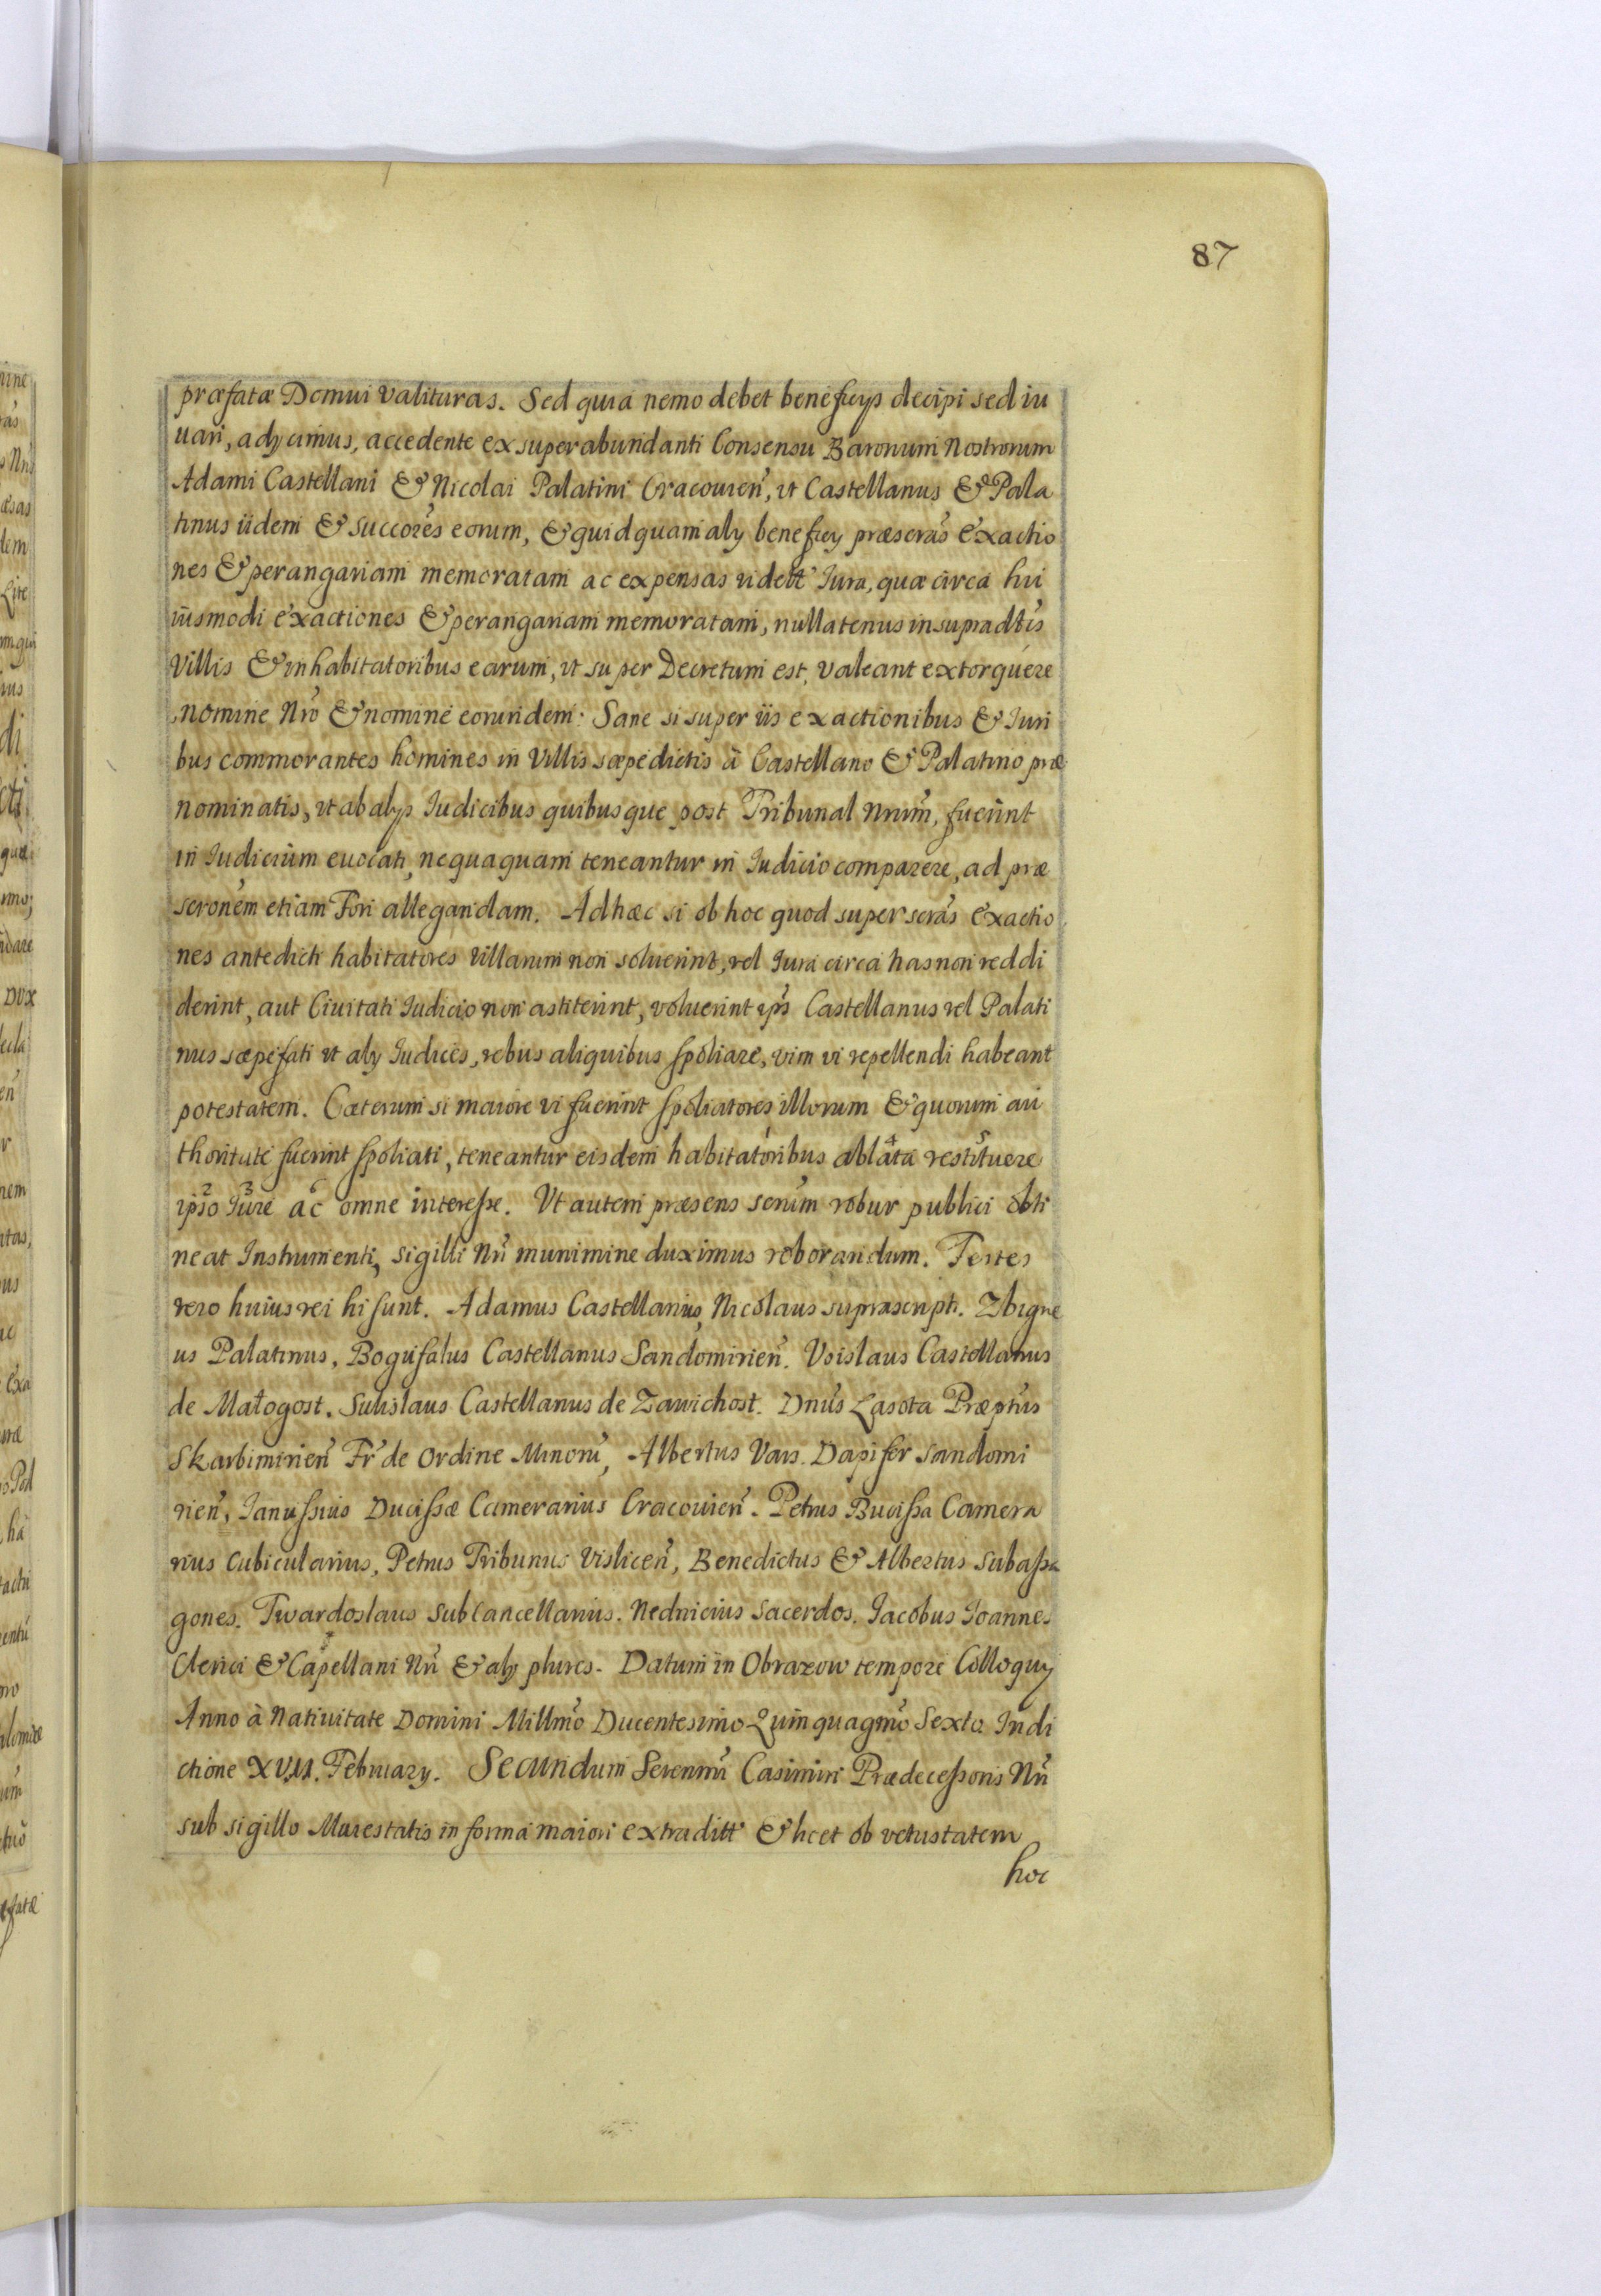 87
præfatæ Domui valituras. Sed quia nemo debet beneficys decipi sed iu
uari, adycimus, accedente ex superabundanti Consensu Baronum Nostrorum
Adami Castellani & Nicolai Palatini Cracouien̄, vt Castellanus & Pala
tinus iidem & succores̄ eorum, & quidquam aly beneficy præscras̄ exactio
nes & perangariam memoratam ac expensas vidett Iura, quæ circa hu
iusmodi exactiones & perangariam memoratam, nullatenus in supradtis̄
Villis & inhabitatoribus earum, vt super Decretum est, valeant extorquere
nomine Nro̅ & nomine eorundem: Sane si super iis exactionibus & Iuri
bus commorantes homines in Villis sæpedictis à Castellano & Palatino præ
nominatis, vt ab alys Iudicibus quibusque post Tribunal Nrum̄, fuerint
in Iudicium euocati, nequaquam teneantur in Iudicio comparere, ad præ
scronem̄ etiam Fori allegandam. Ad hæc si ob hoc quod super scras̄ exactio
nes antedicti habitatores Villarum non soluerint, vel Iura circa has non reddi
derint, aut Ciuitati Iudicio non astiterint, voluerint ips̄ Castellanus vel Palati
nus sæpefati vt aly Iudices, rebus aliquibus spoliare, vim vi repellendi habeant
potestatem. Cæterum si maiore vi fuerint spoliatores illorum & quorum au
thoritate fuerint spoliati, teneantur eisdem habitatoribus ablata restituere
ipso Iure ac omne interesse. Vt autem præsens scrum̄ robur publici obti
neat Instrumenti, sigilli Nri̅ munimine duximus roborandum. Testes
vero huius rei hi sunt. Adamus Castellanus, Nicolaus suprascripti. Zbigne
us Palatinus, Bogufalus Castellanus Sandomirien̄. Voislaus Castellanus
de Małogost. Sulislaus Castellanus de Zawichost. Dnus̄ Lasota Præptus̄
Skarbimirien̄ Fr̄ de Ordine Minoru̅, Albertus Vars. Dapifer Sandomi
rien̄, Ianussius Ducissæ Camerarius Cracouien̄. Petrus Bucissa Camera
rius Cubicularius, Petrus Tribunus Vislicen̄, Benedictus & Albertus Subassa
gones. Twardoslaus SubCancellarius. Nedwicius Sacerdos. Iacobus Ioannes
Clerici & Capellani Nri̅ & aly plures. Datum in Obrazow tempore Colloquy
Anno à Natiuitate Domini Millmo̅ Ducentesimo Quinquagmo̅ Sexto Indi
ctione XVII. February. Secundum Serenmi̅ Casimiri Prædecessoris Nri̅
sub sigillo Maiestatis in forma maiori extraditt & licet ob vetustatem
hoc